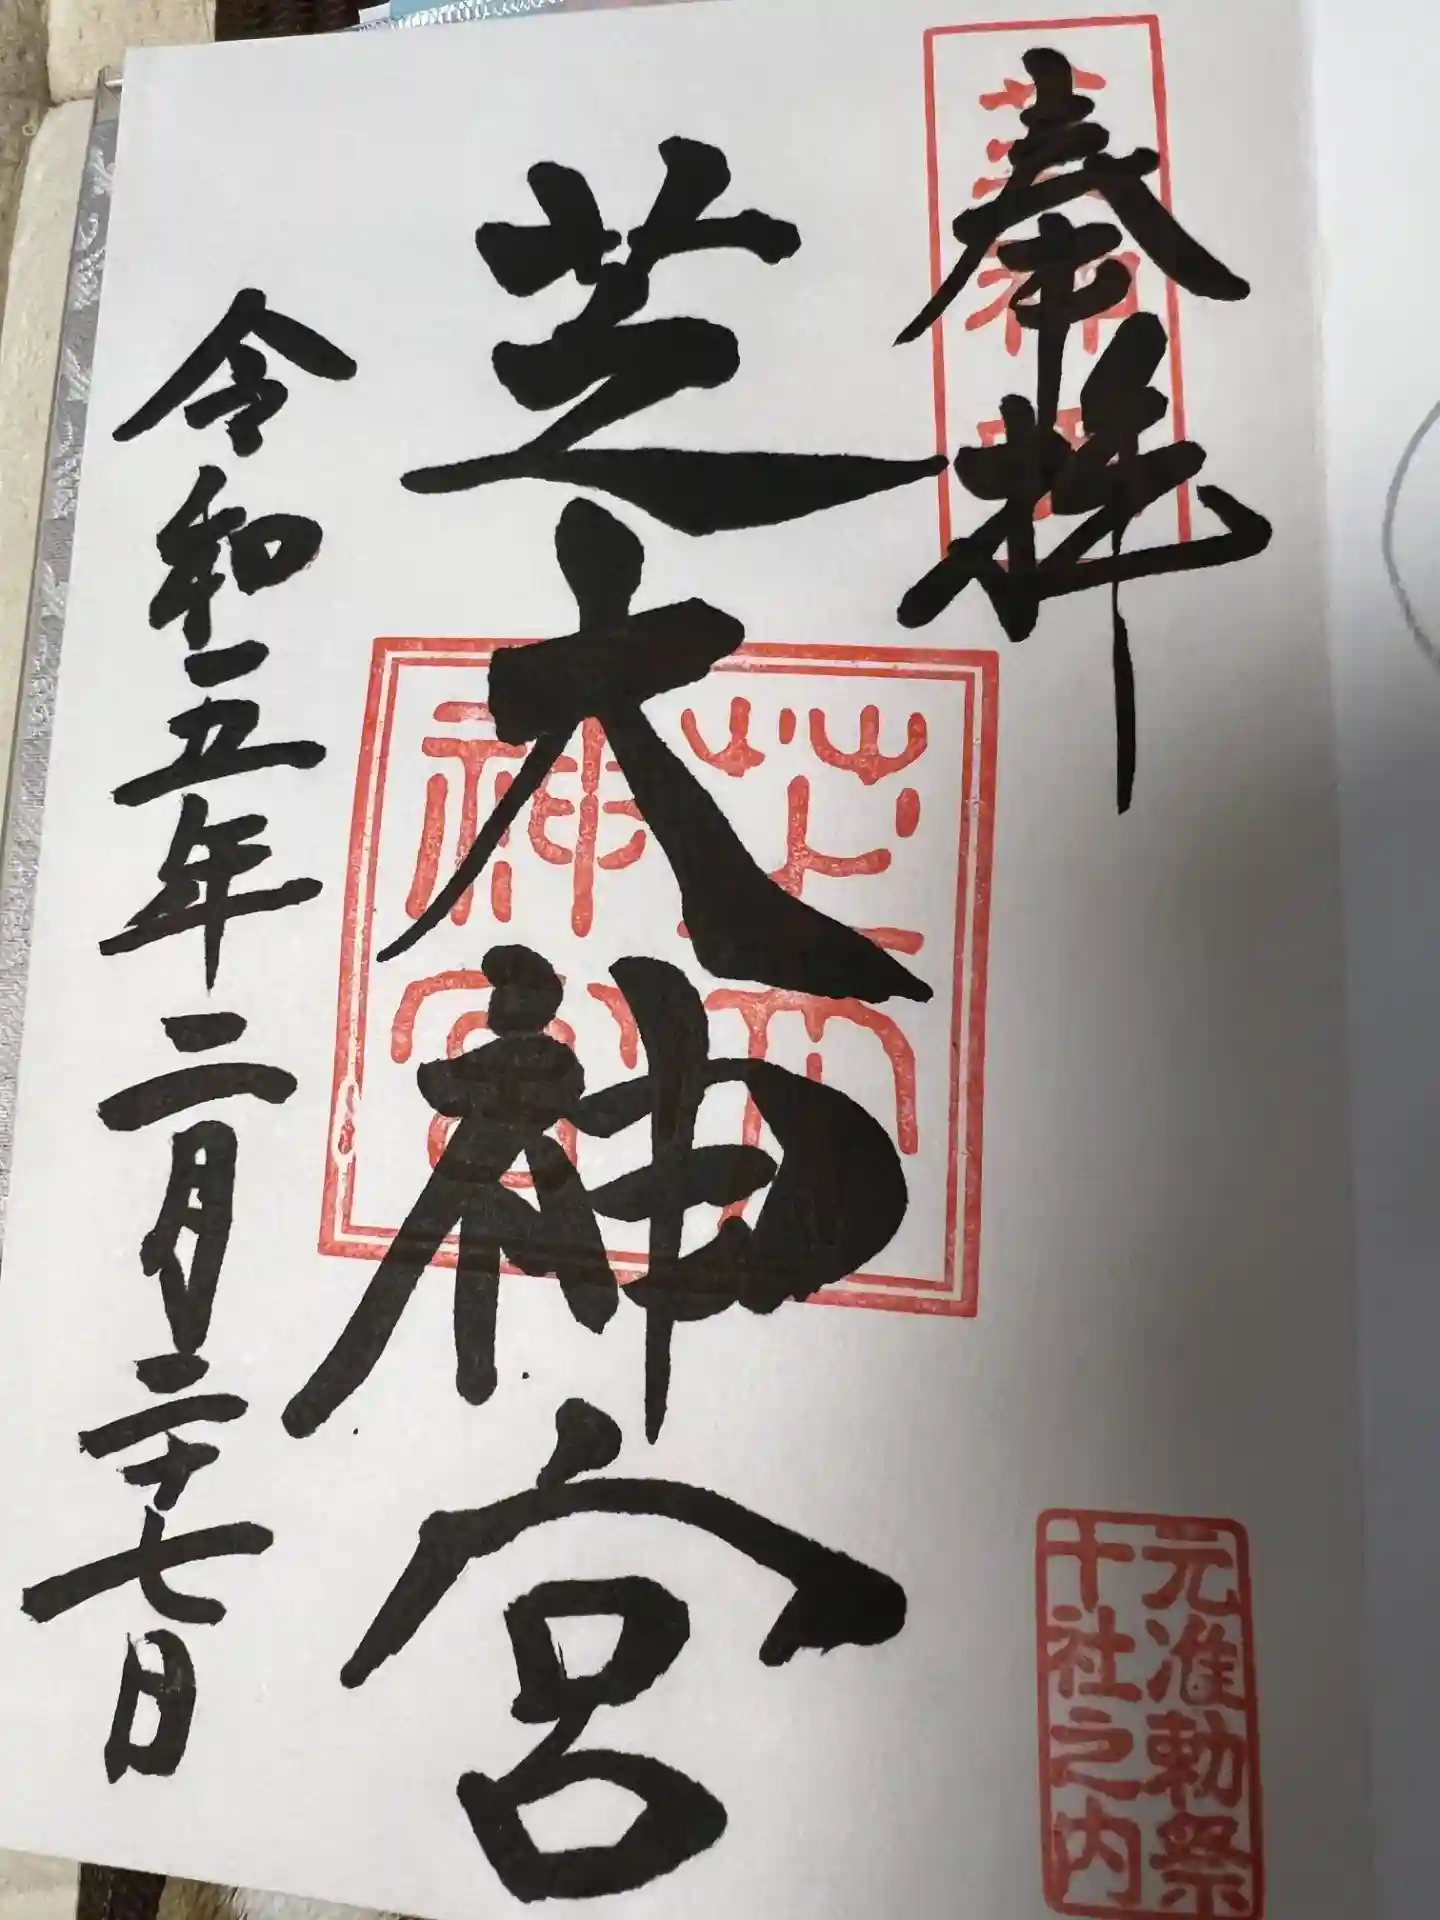 奉拝
芝大神宮
令和五年二月二十七日
芝大
神宮
元准勅祭
十社之内